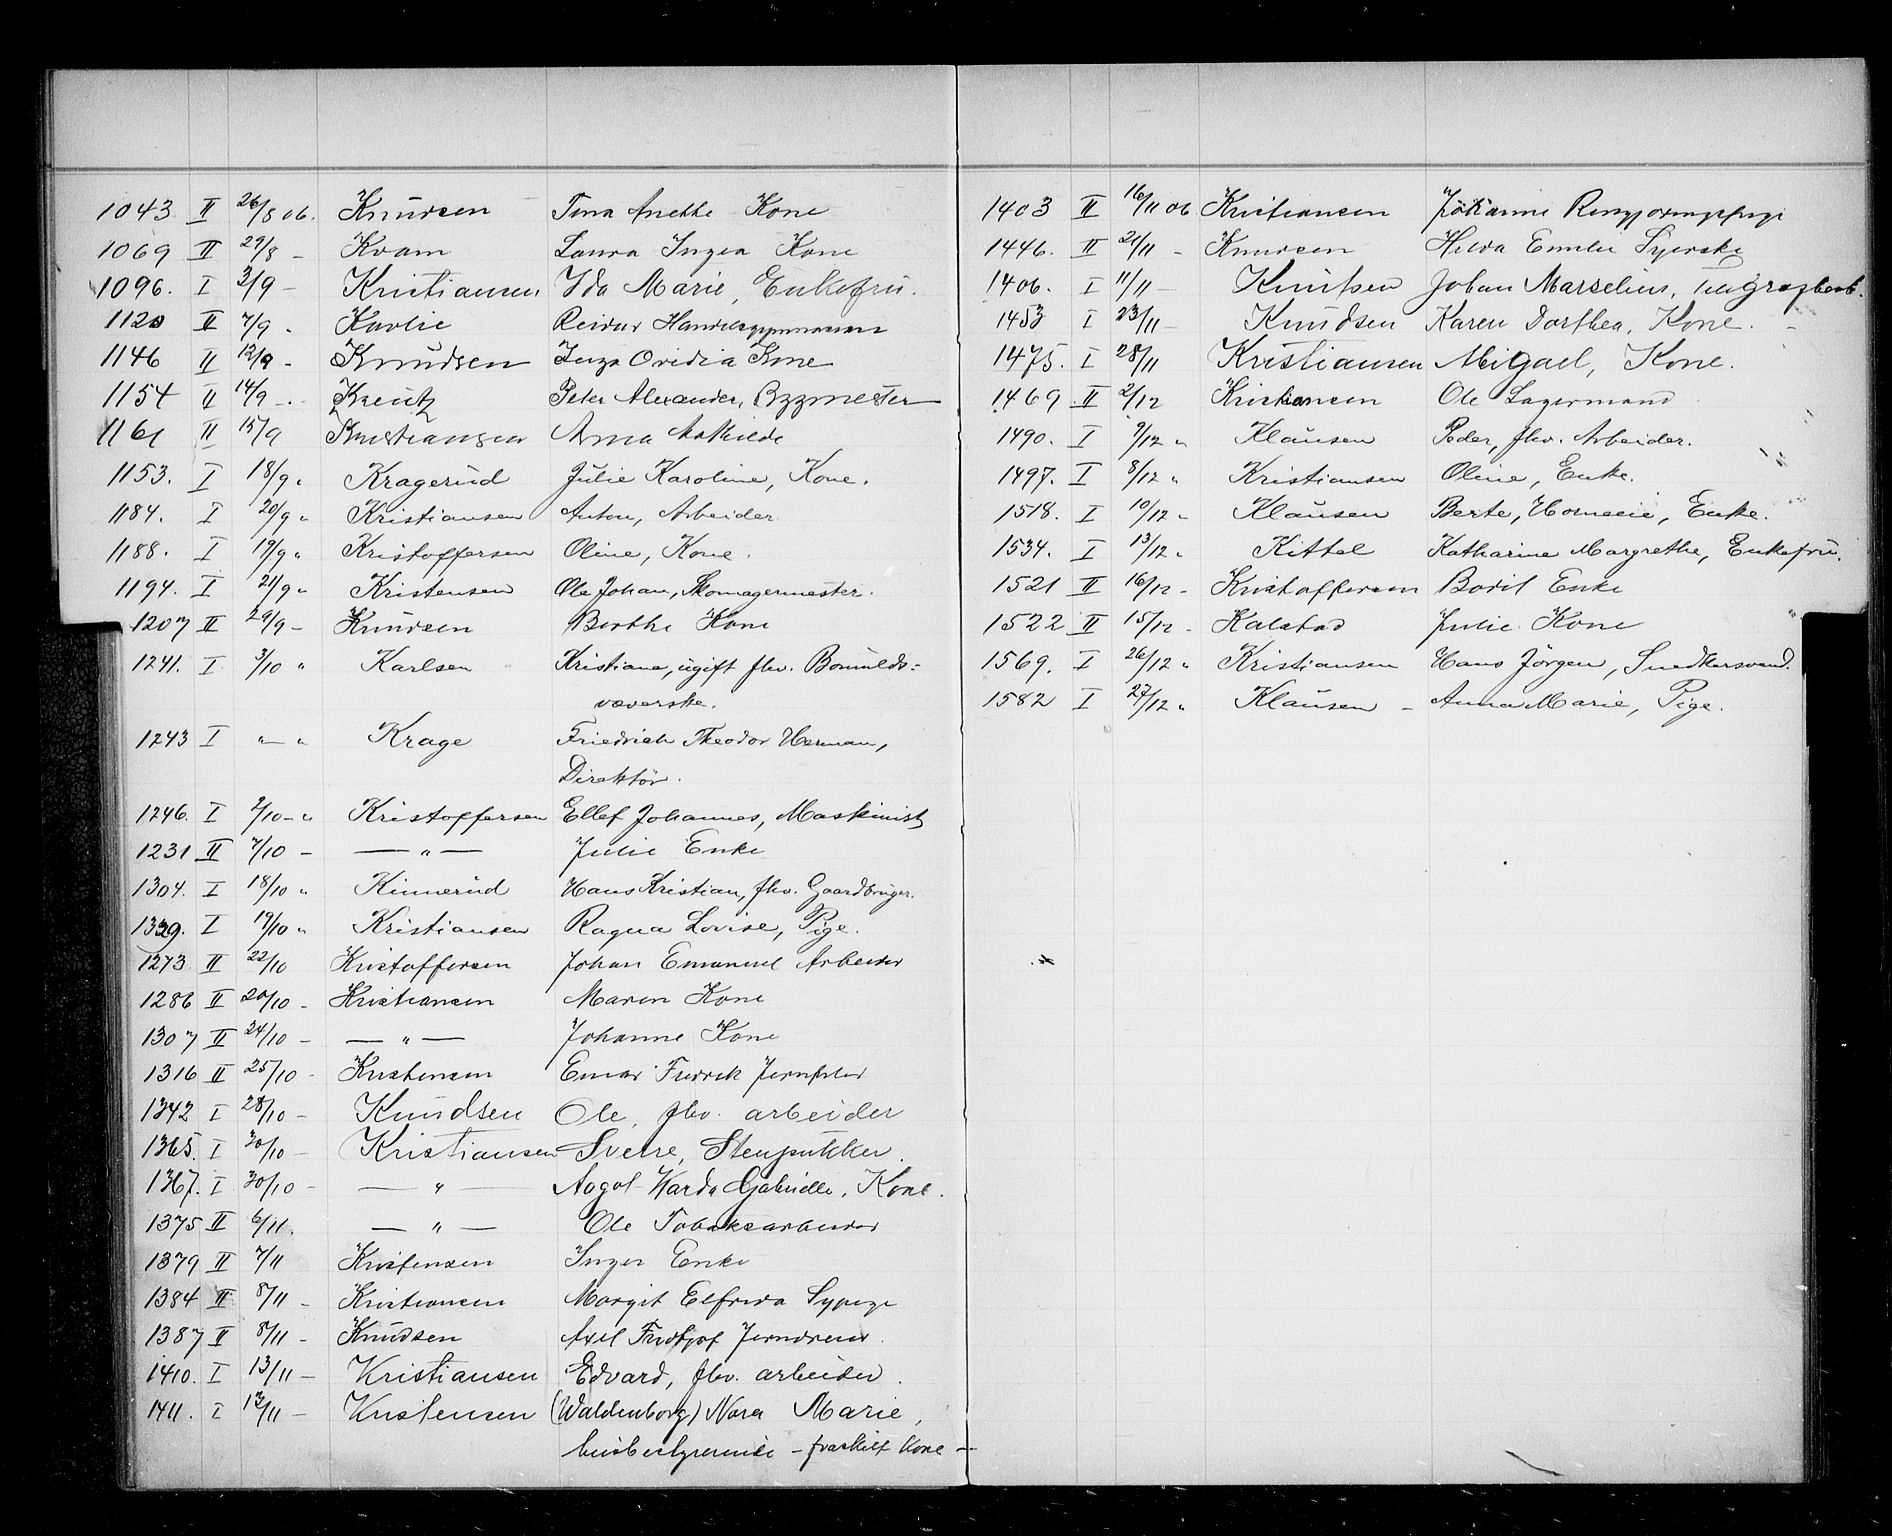 1043 II 26/8 06. Knudsen Tina Anette Kone
1069 II 29/8 - Kvam Laura Ingea Kone
1096. I 3/9 - Kristiansen Ida Marie, Enkefru.
1120 II 7/9 - Kavlie Reidar Handelsgymnasiast
1146 II 12/9 - Knudsen Inga Ovidia Kone
1154 II 14/9 - Kreutz Peter Alexander, Byggmester
1161 II 15/9 Kristiansen Anna Mathilde
1153. I 18/9 " Kragerud Julie Karoline, Kone.
1184. I 20/9 " Kristiansen Anton, Arbeider
1188. I 19/9 " Kristoffersen Oline, Kone.
1194. I 21/9 " Kristensen Ole Johan, Skomagermester.
1207 II 29/9 - Knudsen Berthe Kone
1241. I 3/10 " Karlsen Kristiane, ugift fhv. Bomulds=
væverske.
1243 I "—" " Krage Friedrich Theodor Herman,
Direktör.
1246. I 2/10 - " Kristoffersen Ellef Johannes, Maskinist
1231 II 7/10 - — " — Julie Enke
1304. I 18/10 " Kinnerud Hans Kristian, fhv. Gaardbruger.
1329. I 19/10 " Kristiansen Ragna Lovise, Pige.
1273 II 22/10 Kristoffersen Johan Emanuel Arbeider
1286 II 20/10 - Kristiansen Maren Kone
1307 II 24/10 - — " — Johanne Kone
1316 II 25/10 - Kristensen Einar Fredrik
1342 I 28/10 - Knudsen Ole, fhv. arbeider
1365. I 30/10 - Kristiansen Sverre, Stenpukker.
1367. I 30/10 - — " — Aagot Harda Gabrielle, Kone.
1375 II 6/11. — " — Ole Tobaksarbeider
1379 II 7/11 Kristensen Inger Enke
1384 II 8/11 - Kristiansen Margit Elfrida Sypige
1387 II 8/11 - Knudsen Axel Fridtjof Jerndreier.
1410. I 13/11 - Kristiansen Edvard, fhv. arbeider.
1411. I 12/11 - Kristensen (Waldenborg) Nora Marie,
husbestyrerinde - fraskilt Kone -
1403 II 16/11 06 Kristiansen Johanne Rengjøringspige
1446. II 21/11 - Knudsen Hilda Emilie Syerske
1406. I 11/11 - Knutsen Johan Marselius,
1453 I 23/11 - Knudsen Karen Dorthea, Kone.
1475. I 28/11 Kristiansen Migael, Kone.
1469 II 2/12 Kristiansen Ole Lagermand
1490. I 9/12 " Klausen Peder, fhv. Arbeider.
1497. I 8/12 " Kristiansen Oline, Enke.
1518. I 10/12 " Klausen Berte, Enke.
1534. I 13/12 " Kittel Katharine Margrethe, Enkefru.
1521 II 16/12 - Kristoffersen Bodil Enke
1522 II 15/12 - Kalstad Julie Kone
1569. I 26/12 " Kristiansen Hans Jörgen, Snedkersvend.
1582 I 27/12 " Klausen - Anna Marie, Pige.